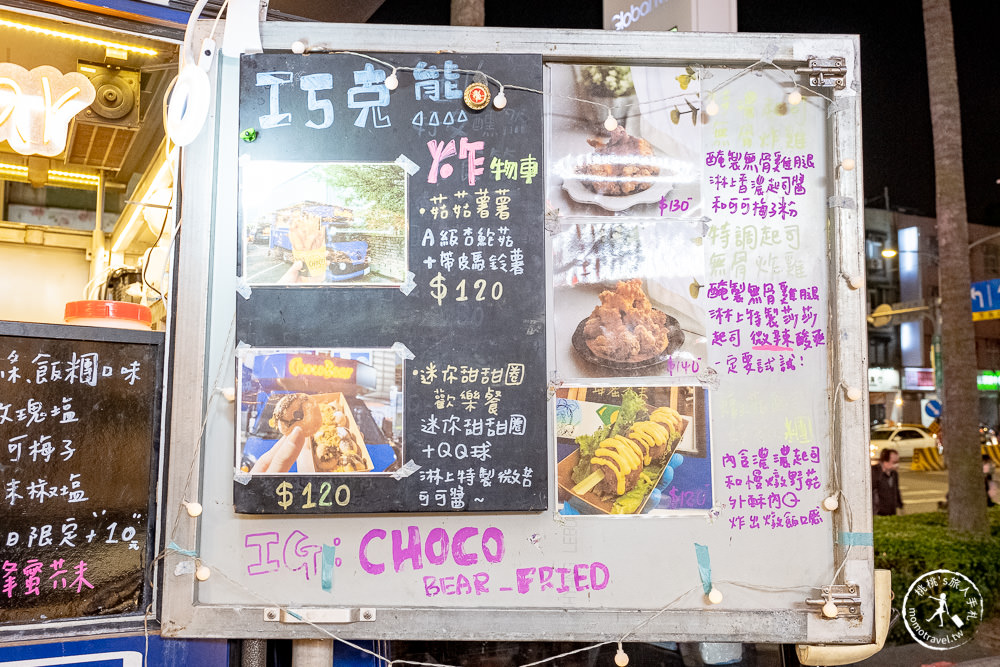 巧克熊
炸物車
·菇菇薯薯
A級杏鮑菇
+帶皮馬鈴薯
$120
ChocoBear
·迷你甜甜圈
歡樂餐
迷你甜甜圈
+QQ球
淋上特製微苦
可可醬~
$120
無骨炸雞
醃製無骨雞腿
淋上香濃起司醬
和可可梅子粉
$130
特調起司
無骨炸雞
醃製無骨雞腿
淋上特製莎莎
起司 微辣酸爽
一定要試試!
$140
內含濃濃起司
和慢燉野菇
外酥內Q
炸出燉飯口感
$120
IG: CHOCO
BEAR_FRIED
飯糰口味
玫瑰塩
可梅子
椒塩
日限定 "+10"
蜂蜜芥末
桃桃's旅人手札
momotravel.tw